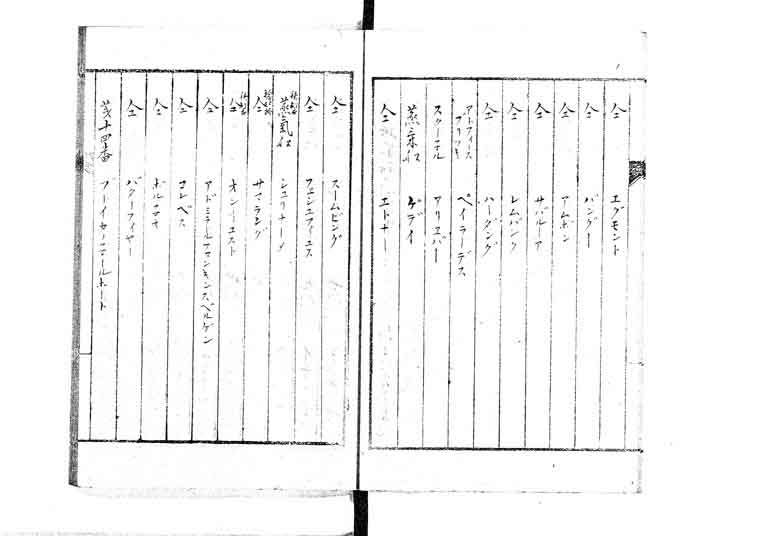 仝 エグモント
仝 バンダー
仝 アムボン
仝 サパルーア
仝 レムバンク
仝 ハーダング
アドフィース ブリッキ ペイラーデス
スクーネル アリエバー
蒸気船 ゲデイ
仝 エトナー
仝 スームビング
仝 フェシユフィユス
蒸氣船 シユリナーメ
仝 サマラング
仝 オンルスト
仝 アドミラールファンキンスベルゲン
仝 コレベス
仝 ボルニヲ
仝 バターフィヤー
第十四番 ブーイカノニールボート